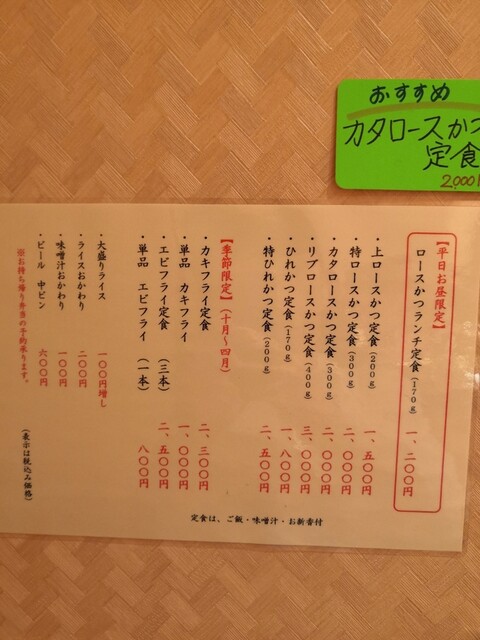 おすすめ
カタロースかつ
定食
2,000
【平日お昼限定】
ロースかつランチ定食(170g) 一、二〇〇円
・上ロースかつ定食(200g) 一、五〇〇円
・特ロースかつ定食(300g) 二、〇〇〇円
・カタロースかつ定食(300g) 二、〇〇〇円
・リブロースかつ定食(400g) 三、〇〇〇円
・ひれかつ定食(170g) 一、八〇〇円
・特ひれかつ定食(200g) 二、五〇〇円
【季節限定】(十月〜四月)
・カキフライ定食 二、三〇〇円
・単品 カキフライ 一、〇〇〇円
・エビフライ定食 (三本) 二、五〇〇円
・単品 エビフライ (一本) 八〇〇円
・大盛りライス 一〇〇円増し
・ライスおかわり 二〇〇円
・味噌汁おかわり 一〇〇円
・ビール 中ビン 六〇〇円
※お持ち帰り弁当の予約承ります。
(表示は税込み価格)
定食は、ご飯・味噌汁・お新香付